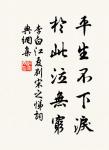 平生不下淚
於此泣無窮
李白江夏别宋之悌詞
典網集